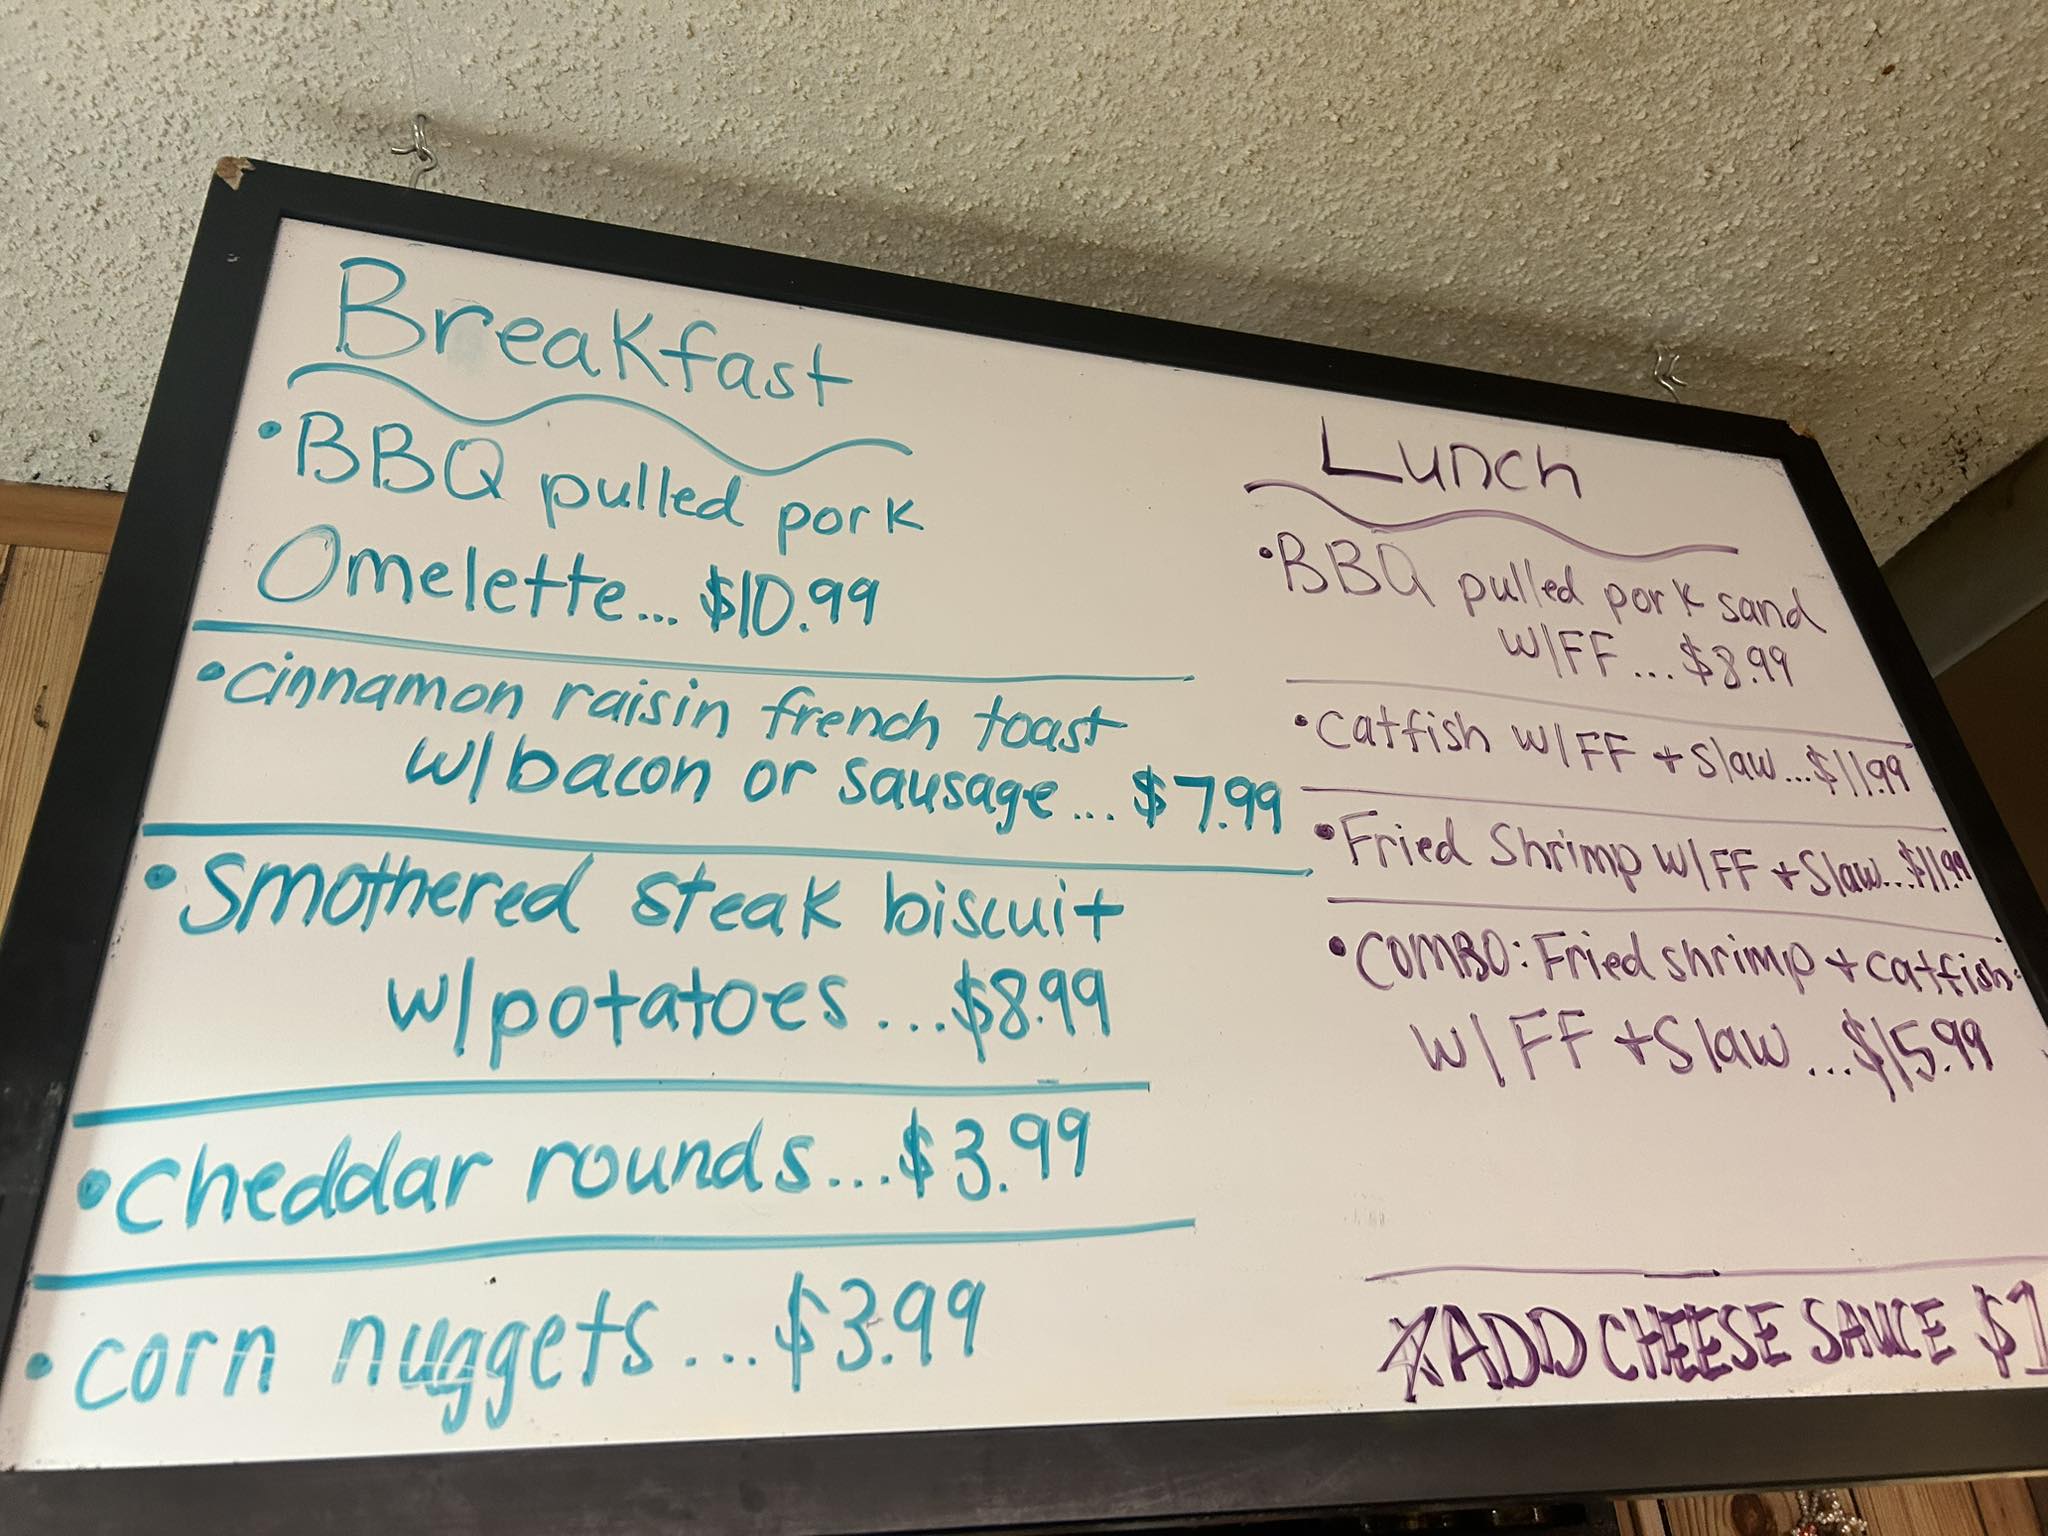 Breakfast
• BBQ pulled pork
Omelette... $10.99
• cinnamon raisin french toast
w/bacon or sausage... $7.99
• Smothered steak biscuit
w/potatoes...$8.99
• cheddar rounds...$3.99
• corn nuggets...$3.99
Lunch
• BBQ pulled pork sand
w/FF...$8.99
• catfish w/FF + slaw...$11.99
• Fried Shrimp w/FF + Slaw...$11.99
• COMBO: Fried shrimp + catfish
w/FF + Slaw...$15.99
ADD CHEESE SAUCE $1